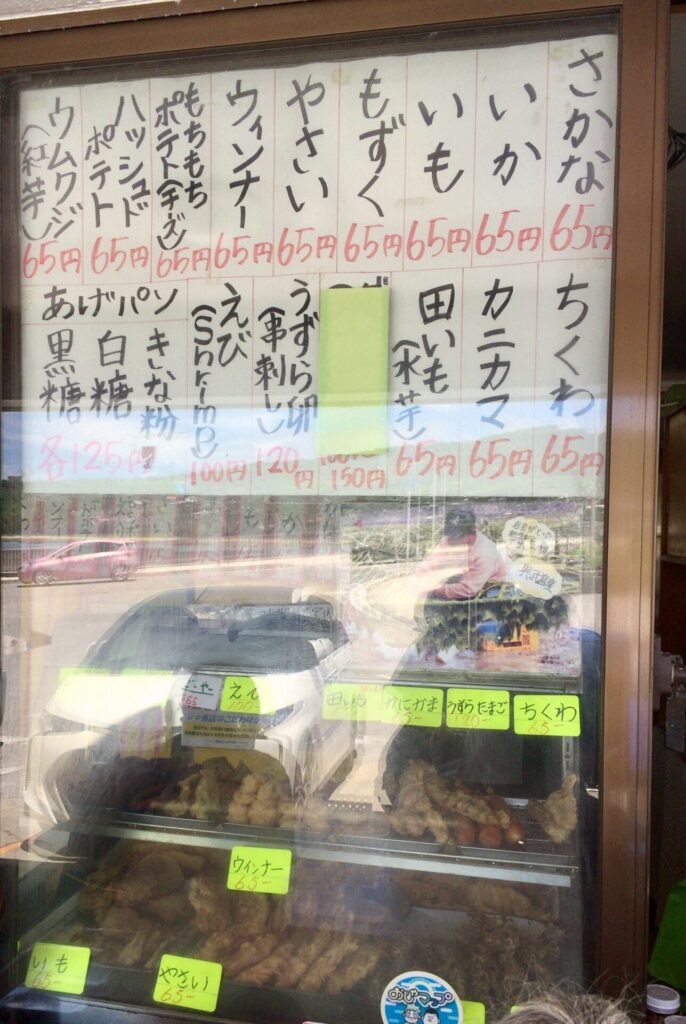 さかな
65円
いか
65円
いも
65円
もずく
65円
やさい
65円
ウィンナー
65円
もちもち
ポテト(チーズ)
65円
ハッシュド
ポテト
65円
ウムクジ
(紅芋)
65円
ちくわ
65円
カニカマ
65円
田いも
(水芋)
65円
150円
うずら卵
(串刺し)
120円
えび
(Shrimp)
100円
あげパン
きな粉
白糖
黒糖
各125円
えび
100-
田いも
かにかま
65-
うずらたまご
120-
ちくわ
65-
ウインナー
65-
いも
65-
やさい
65-
おじゃマップ